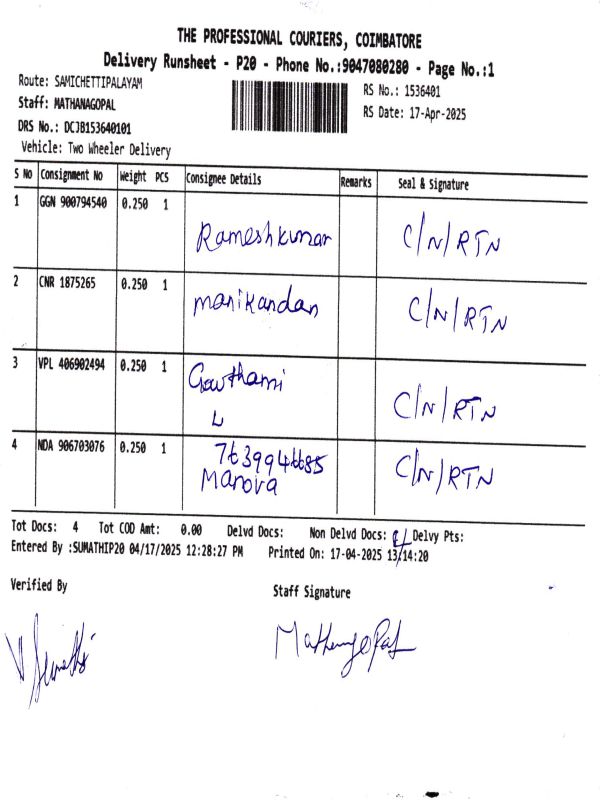 THE PROFESSIONAL COURIERS, COIMBATORE
Delivery Runsheet - P20 - Phone No.:9047080280 - Page No.:1
Route: SAMICHETTIPALAYAM
RS No.: 1536401
Staff: MATHANAGOPAL
RS Date: 17-Apr-2025
DRS No.: DCJB153640101
Vehicle: Two Wheeler Delivery
S No Consignment No Weight PCS Consignee Details Remarks Seal & Signature
1 GGN 900794540 0.250 1 Rameshkumar C/N/RTN
2 CNR 1875265 0.250 1 manikandan C/N/RTN
3 VPL 406902494 0.250 1 Gowthami C/N/RTN
L
4 NDA 906703076 0.250 1 C/N/RTN
Tot Docs: 4 Tot COD Amt: 0.00 Delvd Docs: Non Delvd Docs: 4 Delvy Pts:
Entered By :SUMATHIP20 04/17/2025 12:28:27 PM Printed On: 17-04-2025 13:14:20
Verified By
Staff Signature